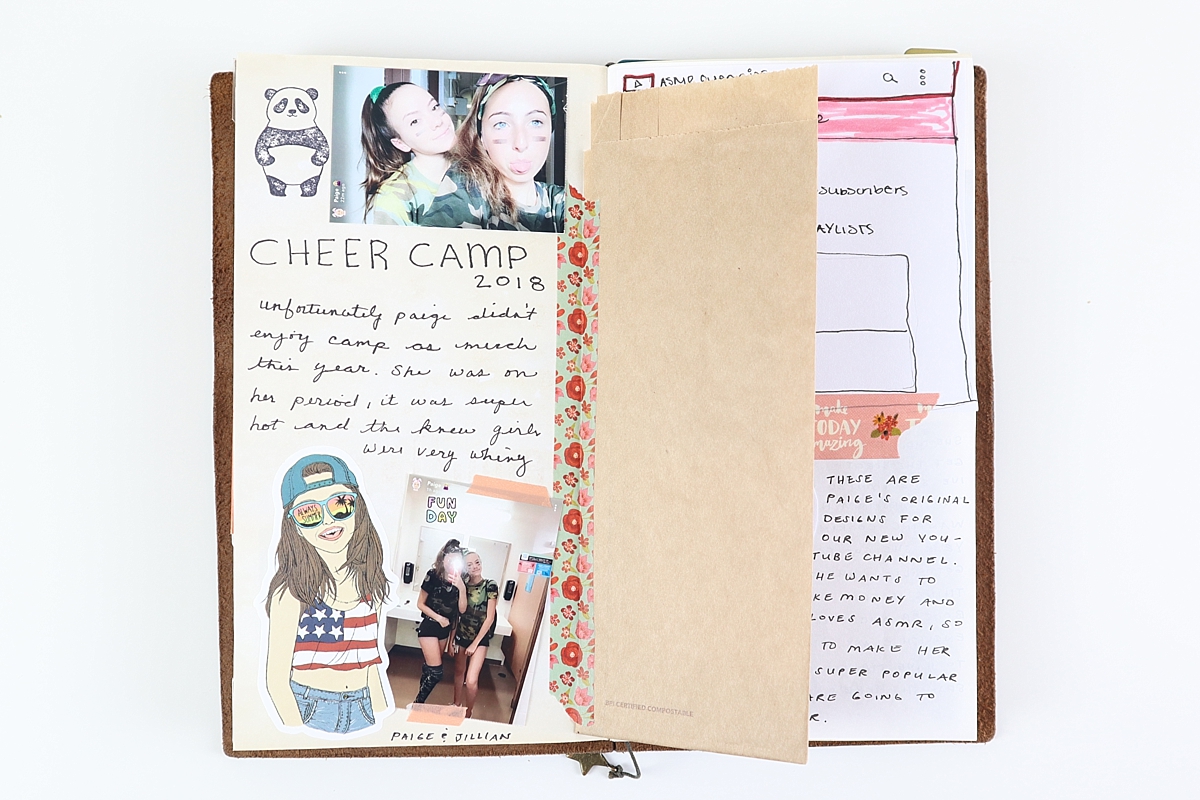 CHEER CAMP
2018
unfortunately paige didn't
enjoy camp as much
this year. She was on
her period, it was super
hot and the knew girls
were very whing
ALWAYS
SUMMER
Paige
FUN
DAY
PAIGE & JILLIAN
BPI CERTIFIED COMPOSTABLE
ASMR
SUBSCRIBERS
AYLISTS
TODAY
mazing
THESE ARE
PAIGE'S ORIGINAL
DESIGNS FOR
OUR NEW YOU-
TUBE CHANNEL.
HE WANTS TO
KE MONEY AND
LOVES ASMR, SO
TO MAKE HER
SUPER POPULAR
ARE GOING TO
R.